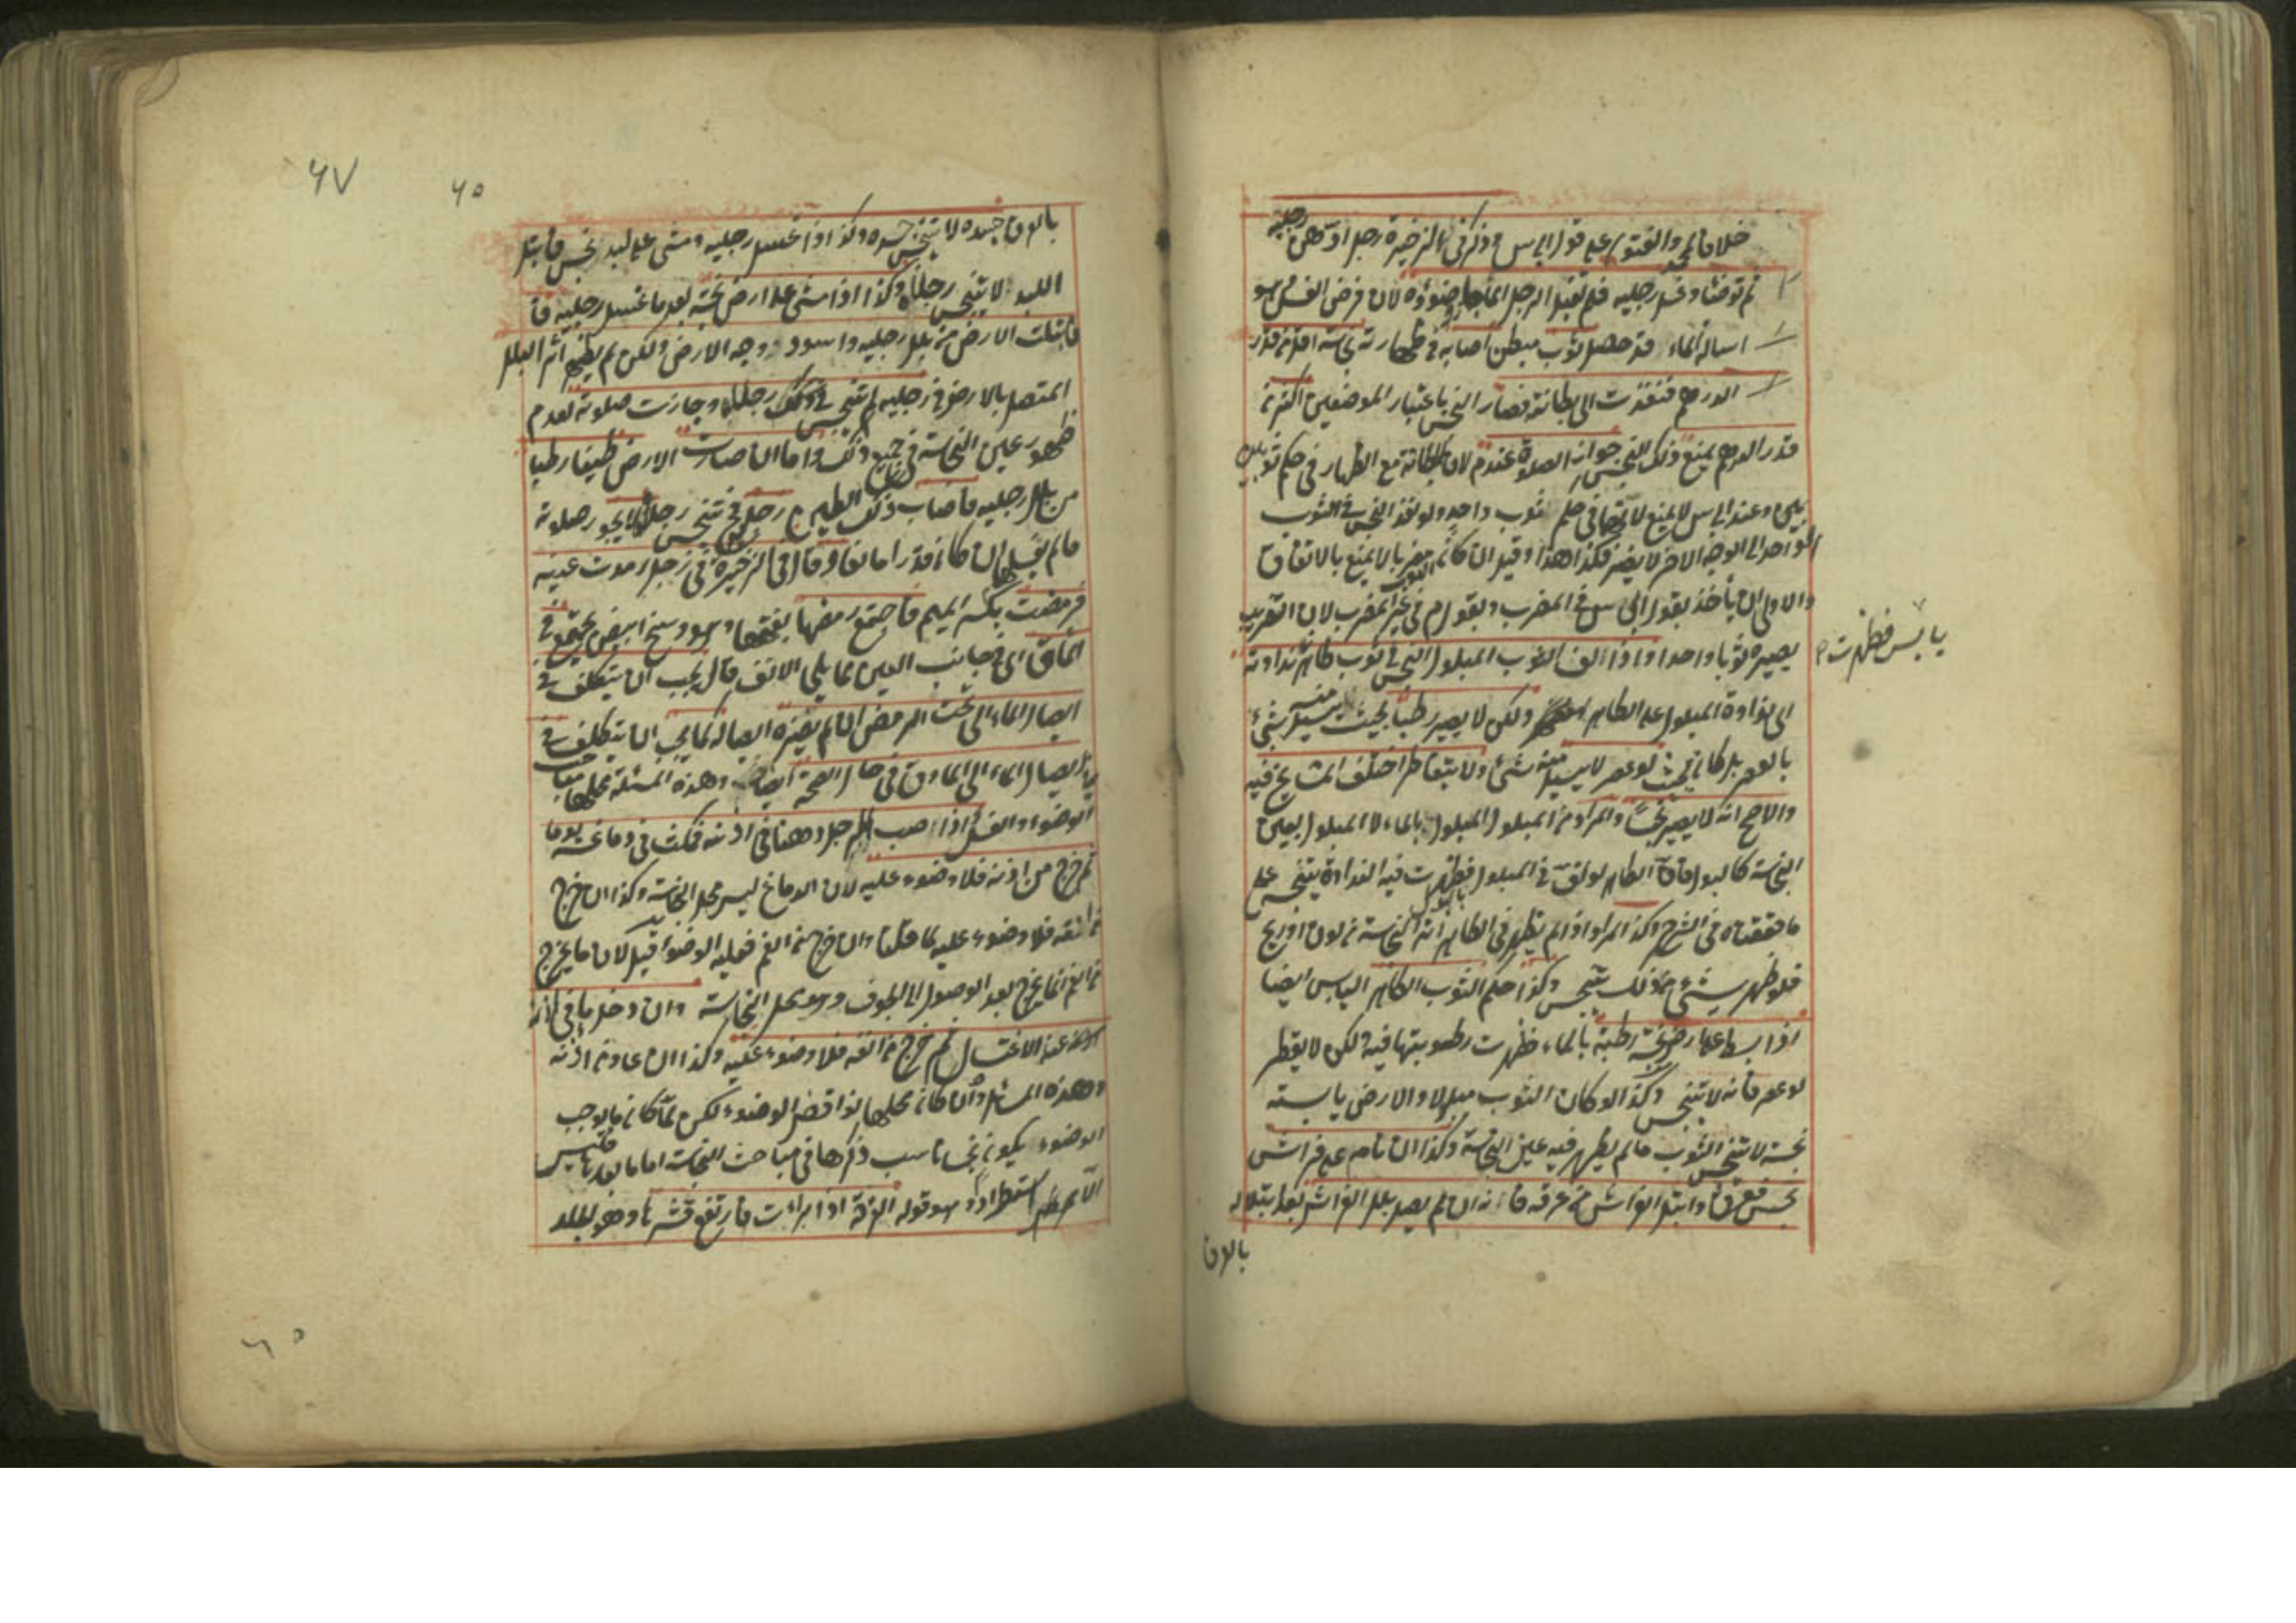 خلافا لمحمد والفتوى على قول ابي س وذكر في الذخيرة رجل ادهن رجليه
ثم توضأ وغسل رجليه فلم تقبل الرجل الماء جاز وضوؤه لان فرض الغسل هو
اسالة الماء وقد حصل ثوب مبطن اصابه في ظهارته نجاسة اقل من قدر
الدرهم فنفذت الى بطانته فصار النجس باعتبار الموضعين اكثر من
قدر الدرهم يمنع ذلك النجس جواز الصلوة عند م لان البطانة مع الظهار في حكم ثوبين
وعند ابي س لا يمنع لانها في حكم ثوب واحد ولو نفذ النجس في الثوب
الواحد الى الوجه الاخر لا يضر فكذا هذا وقيل ان كان مضربا لا يمنع بالاتفاق
والاولى ان يأخذ بقول ابي س في المضرب وبقول م في غير المضرب لان التضريب
يصيره ثوبا واحدا واذا الف الثوب المبلول النجس في ثوب طاهر نداوته
يابس فظهرت
اى نداوة المبلول على الطاهر ولكن لا يصير رطبا بحيث يسيل منه شئ
بالعصر بل كان بحيث لو عصر لا يسيل منه شئ ولا يتقاطر اختلف المشايخ فيه
والاصح انه لا يصير نجسا والمراد من المبلول المبلول بالماء لا المبلول بعين
النجاسة كالبول فان الطاهر لو لف في المبلول بالبول فظهرت فيه النداوة يتنجس على
ما حققناه في الشرح وكذا المراد اذا لم يظهر في الطاهر اثر النجاسة من لون او ريح
فلو ظهر شئ من ذلك يتنجس وكذا حكم الثوب الطاهر اليابس ايضا
اذا بسط على ارض نجسة رطبة بالماء فظهرت رطوبتها فيه لكن لا يقطر
لو عصر فانه لا يتنجس وكذا لو كان الثوب مبلولا والارض يابسة
نجسة لا يتنجس الثوب ما لم يظهر فيه عين النجاسة وكذا ان نام على فراش
نجس فعرق وابتل الفراش من عرقه فانه ان لم يصل بلل الفراش بعد ابتلاله
بالعرق
٦٧
٦٥
بالعرق جسده لا يتنجس جسده وكذا اذا غسل رجليه ومشى على لبد نجس فابتل
اللبد لا يتنجس رجلاه وكذا اذا مشى على ارض نجسة بعد ما غسل رجليه فا
فابتلت الارض من بلل رجليه واسود وجه الارض ولكن لم يظهر اثر البلل
المتصل بالارض في رجليه لم تتنجس رجلاه وجازت صلوته لعدم
ظهور عين النجاسة في جميع ذلك واما ان صارت الارض طينا رطبا
من بلل رجليه فاصاب ذلك الطين رجله تتنجس رجله لا يجوز صلوته
ما لم يغسلها ان كان قدرا مانعا وقال في الذخيرة في رجل رمدت عينه
فرمضت بكسر الميم فاجتمع رمضها بفتحها وهو وسخ ابيض يجتمع في
المآق اى في جانب العين مما يلى الانف قال يجب ان يتكلف في
ايصال الماء الى تحت الرمض ان لم يضره ايصاله كما يجب ان يتكلف في
ايصال الماء الى المآق في حال الصحة ايضا وهذه المسئلة محلها مباحث
الوضوء والغسل اذا صب الرجل دهنا في اذنه فمكث في دماغه يوما
ثم خرج من اذنه فلا وضوء عليه لان الدماغ ليس محل النجاسة وكذا ان خرج
من انفه فلا وضوء عليه لما قلنا وان خرج من الفم فعليه الوضوء قيل لان ما يخرج
من الفم انما يخرج بعد الوصول الى الجوف وهو محل النجاسة وان دخل ماء في اذنه
عند الاغتسال ثم خرج من انفه فلا وضوء عليه وكذا ان عاد من اذنه
وهذه المسائل وان كان محلها نواقض الوضوء لكن لما كان ما يوجب
الوضوء يكون نجسا ناسب ذكرها في مباحث النجاسة اما ما بعدها فليس
الا استطرادا وهو قوله القرحة اذا برأت فارتفع قشرها وهو الجلد
٦٥